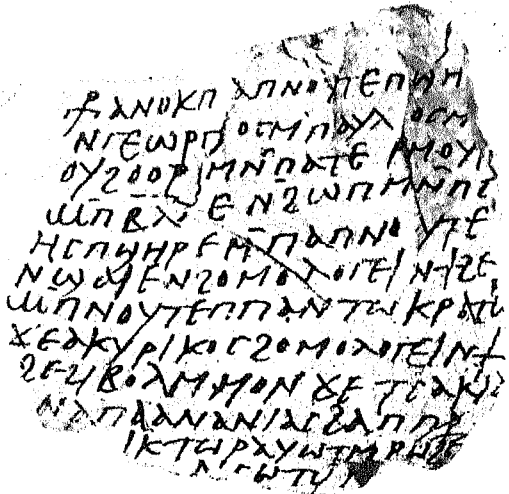 ⳨ⲁⲛⲟⲕⲡⲁⲡⲛⲟⲩⲧⲉⲡϣⲏ
ⲛⲅⲉⲱⲣⲅⲓⲟⲥⲙⲛⲡⲁⲩⲗⲟⲥⲙ
ⲟⲩϩⲟⲟⲣ ⲙⲛⲡⲁⲧⲉⲣⲙⲟⲩ
ⲙⲡⲃⲁⲗ ⲉⲛϩⲱⲡⲙⲛⲡ
ⲏⲥⲡϣⲏⲣⲉⲙⲡⲁⲡⲛⲟⲩⲧⲉ
ⲛⲱϣⲁⲓⲉⲛϩⲟⲙⲟⲗⲟⲅⲉⲓⲛϯϩⲉ
ⲙⲡⲛⲟⲩⲧⲉⲡⲡⲁⲛⲧⲱⲕⲣⲁⲧⲱ
ϫⲉⲁⲕⲩⲣⲓⲕⲟⲥϩⲟⲙⲟⲗⲟⲅⲉⲓⲛϯ
ϩⲉϥⲃⲟⲗⲙⲙⲟⲛϫⲉⲧⲥⲁⲕ
ⲛⲁⲡⲁⲁⲛⲁⲛⲓⲁⲥϩⲁⲡⲡ
ⲓⲕⲧⲱⲣⲁⲩⲱⲧⲙⲣⲱ
ⲛⲥⲱⲧ